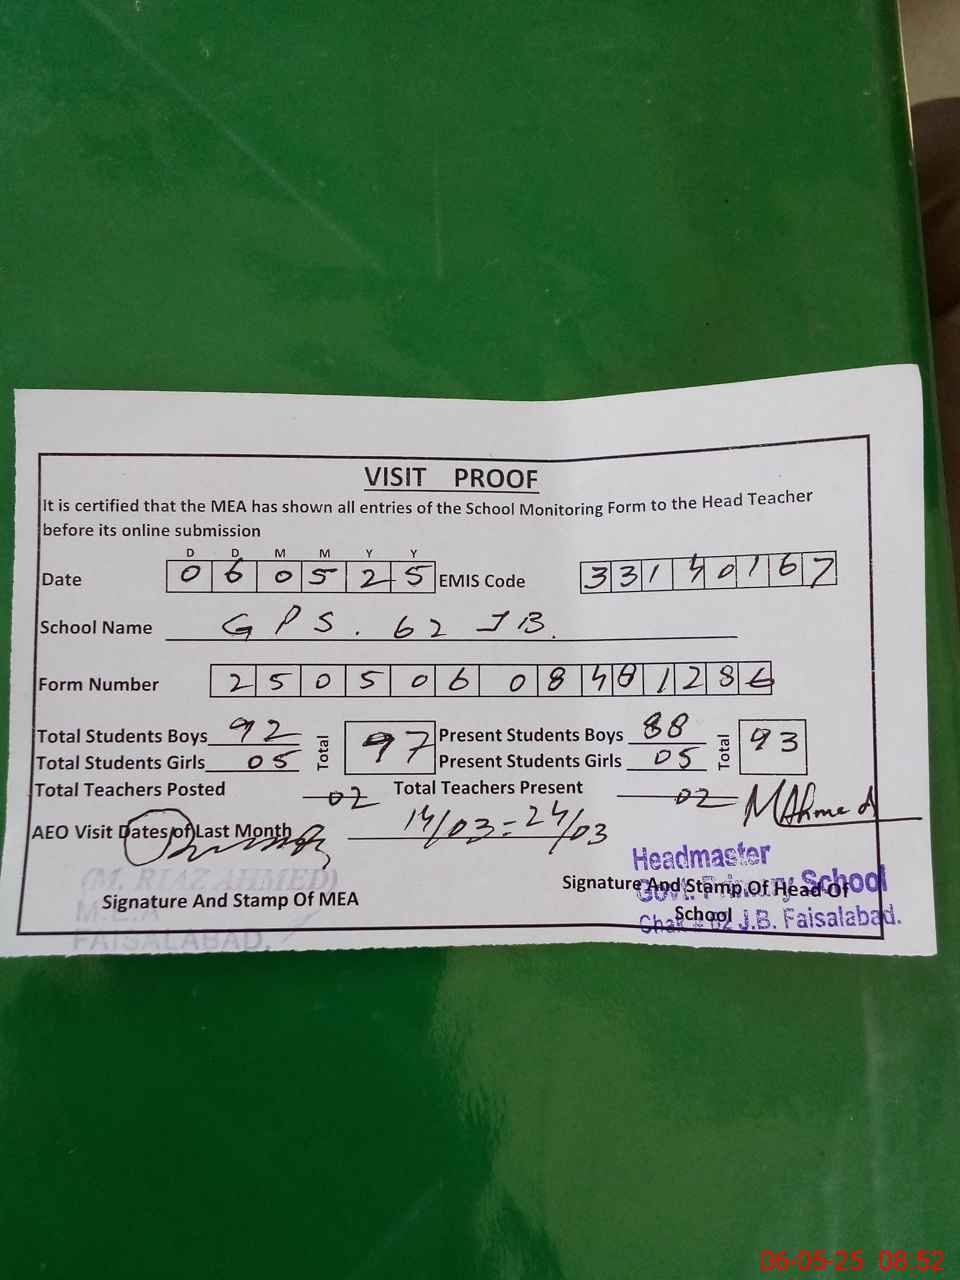 VISIT PROOF
It is certified that the MEA has shown all entries of the School Monitoring Form to the Head Teacher
before its online submission
D D M M Y Y
Date 0 6 0 5 2 5 EMIS Code 3 3 1 4 0 1 6 7
School Name GPS. 62 JB.
Form Number 2 5 0 5 0 6 0 8 4 8 1 2 8 6
Total Students Boys 92 Total 97 Present Students Boys 88 Total 93
Total Students Girls 05 Present Students Girls 05
Total Teachers Posted 02 Total Teachers Present 02 MAhmed
AEO Visit Dates of Last Month 14/03 = 24/03
(M. RIAZ AHMED)
M.E.A
FAISALABAD.
Signature And Stamp Of MEA
Headmaster
Govt. Primary School
Chak # 62 J.B. Faisalabad.
Signature And Stamp Of Head Of
School
06-05-25 08:52